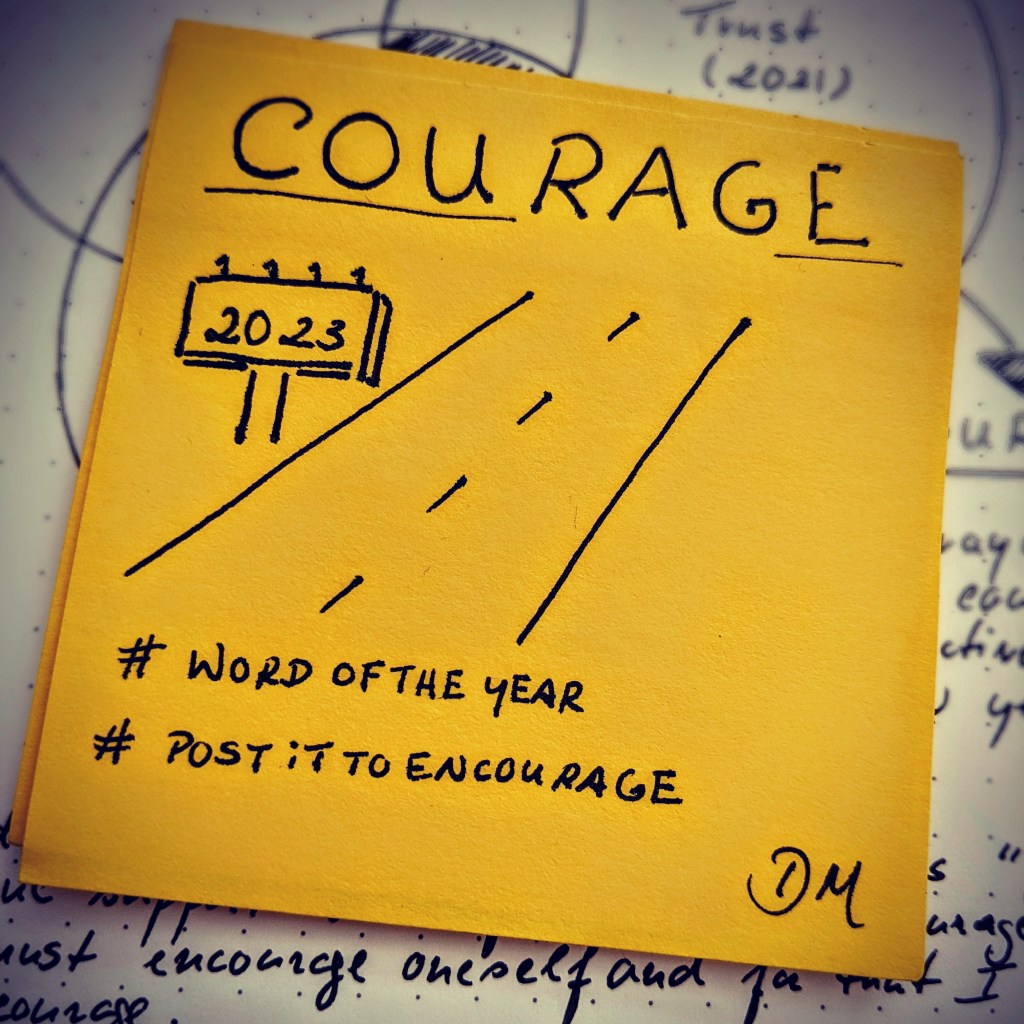 Trust
(2021)
COURAGE
2023
# WORD OF THE YEAR
# POST iT TO ENCOURAGE
DM
must encourage oneself and for that I
courage.